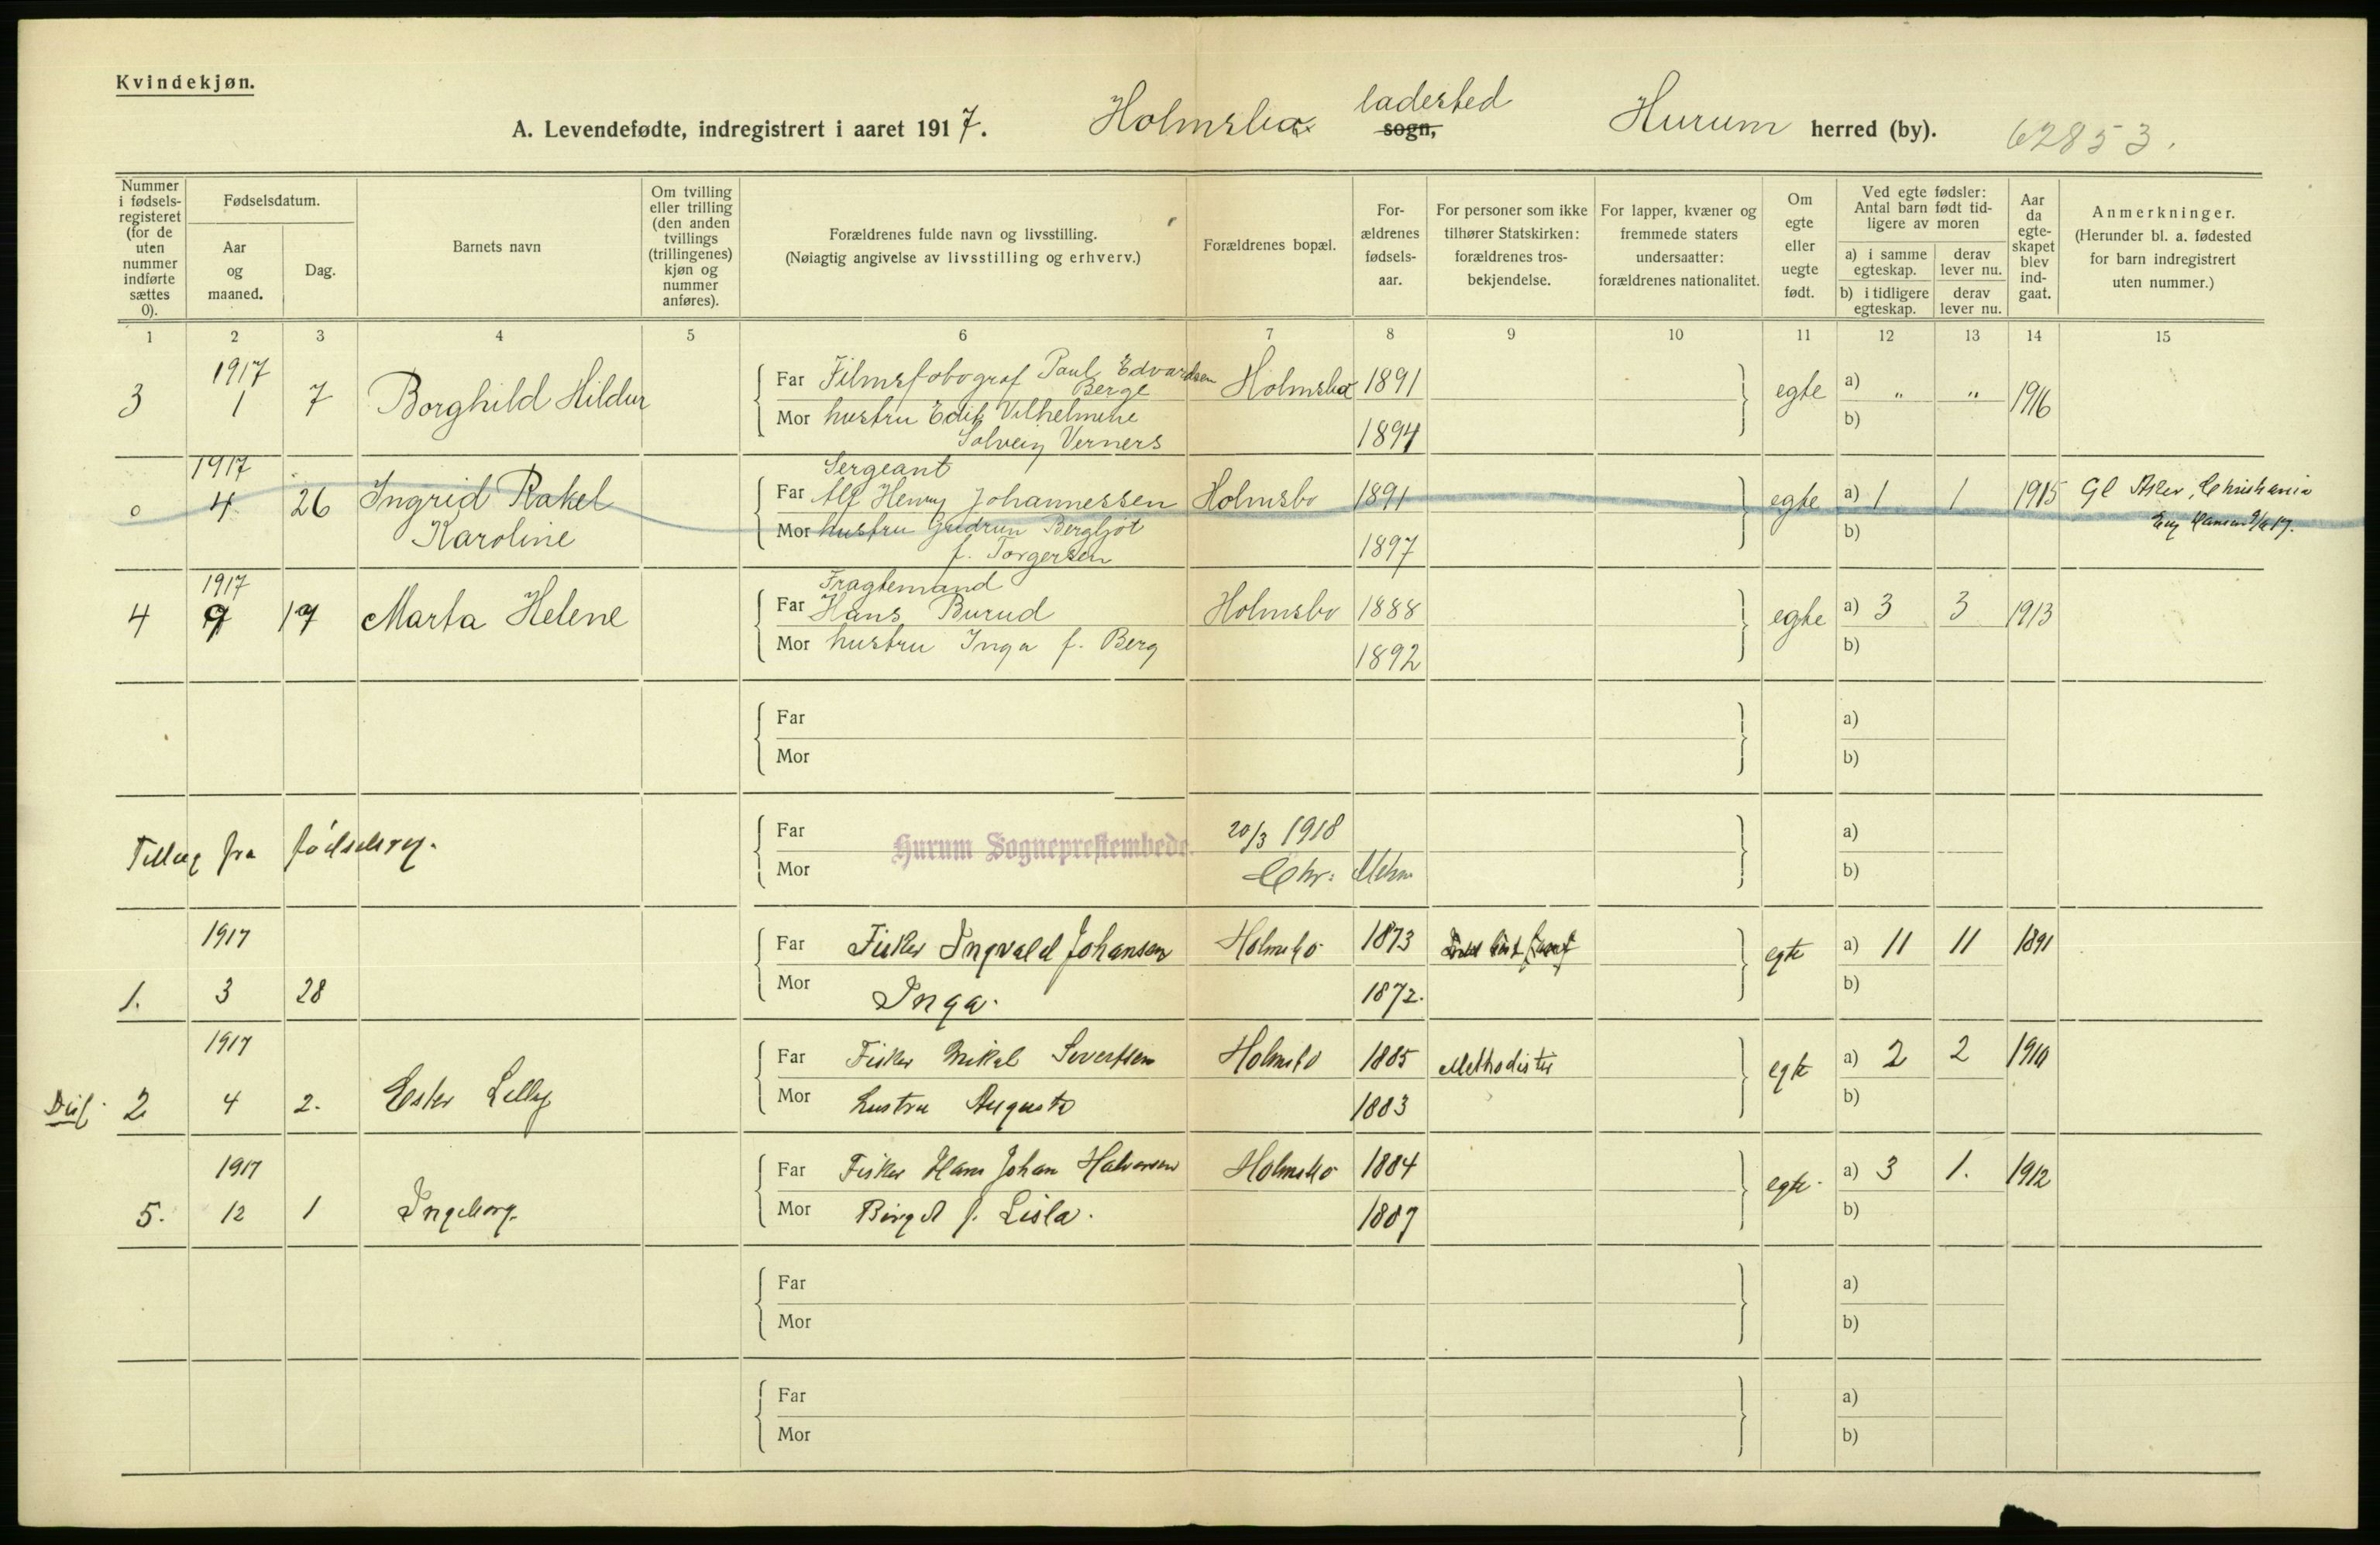 Kvindekjøn.
A. Levendefødte, indregistrert i aaret 1917. Holmsbo ladested sogn, Hurum herred (by). 62853.
Nummer i fødsels-registeret (for de uten nummer indførte sættes 0).
Fødselsdatum.
Aar og maaned.
Dag.
Barnets navn
Om tvilling eller trilling (den anden tvillings (trillingenes) kjøn og nummer anføres).
Forældrenes fulde navn og livsstilling.
(Nøiagtig angivelse av livsstilling og erhverv.)
Forældrenes bopæl.
For-ældrenes fødsels-aar.
For personer som ikke tilhører Statskirken: forældrenes tros-bekjendelse.
For lapper, kvæner og fremmede staters undersaatter: forældrenes nationalitet.
Om egte eller uegte født.
Ved egte fødsler: Antal barn født tid-ligere av moren
a) i samme egteskap.
derav lever nu.
b) i tidligere egteskap.
derav lever nu.
Aar da egte-skapet blev ind-gaat.
Anmerkninger.
(Herunder bl. a. fødested for barn indregistrert uten nummer.)
1 2 3 4 5 6 7 8 9 10 11 12 13 14 15
3 1917 1 7 Borghild Hildur
Far Filmsfotograf Paul Edvardsen Berge Holmsbo 1891 egte a) " " 1916
Mor hustru Edit Vilhelmine Solveig Verners 1894 b)
0 1917 4 26 Ingrid Rakel Karoline
Far Sergeant Alf Henry Johannessen Holmsbo 1891 egte a) 1 1 1915 Gl Aker, Christiania
Mor hustru Gudrun Bergljot f. Torgersen 1897 b)
4 1917 9 17 Marta Helene
Far Fragtemand Hans Burud Holmsbo 1888 egte a) 3 3 1913
Mor hustru Inga f. Berg 1892 b)
Far a)
Mor b)
Tillæg fra fødselsreg.
Far Hurum Sogneprestembede. 20/3 1918 a)
Mor Chr. b)
1. 1917 3 28
Far Fisker Ingvald Johansen Holmsbo 1873 egte a) 11 11 1891
Mor Inga. 1872. b)
2 1917 4 2. Ester Lilly
Far Fisker Mikal Sivertsen Holmsbo 1885 Methodister egte a) 2 2 1910
Mor hustru Augusta 1883 b)
5. 1917 12 1 Ingeborg
Far Fisker Hans Johan Halvorsen Holmsbo 1884 egte. a) 3 1. 1912
Mor Birgit f. Lisla. 1887 b)
Far a)
Mor b)
Far a)
Mor b)